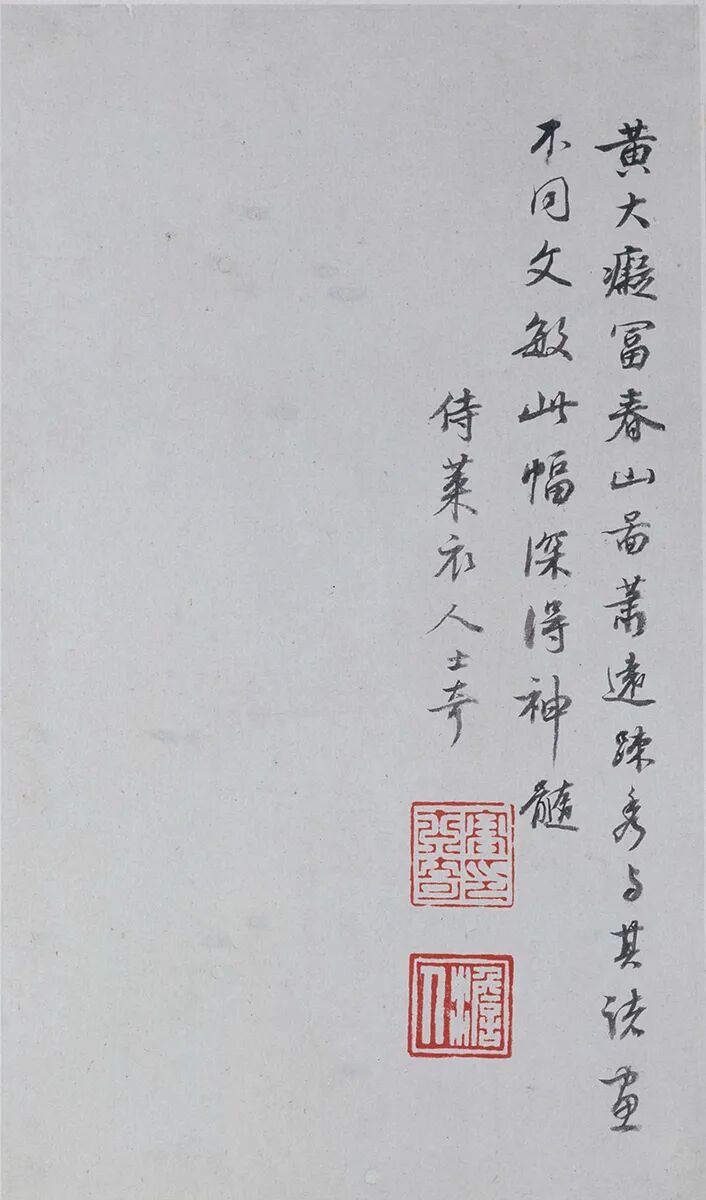 黃大癡冨春山啚蕭遠踈秀与其諸畫
不同文敏此幅深得神髓
侍萊衣人士奇